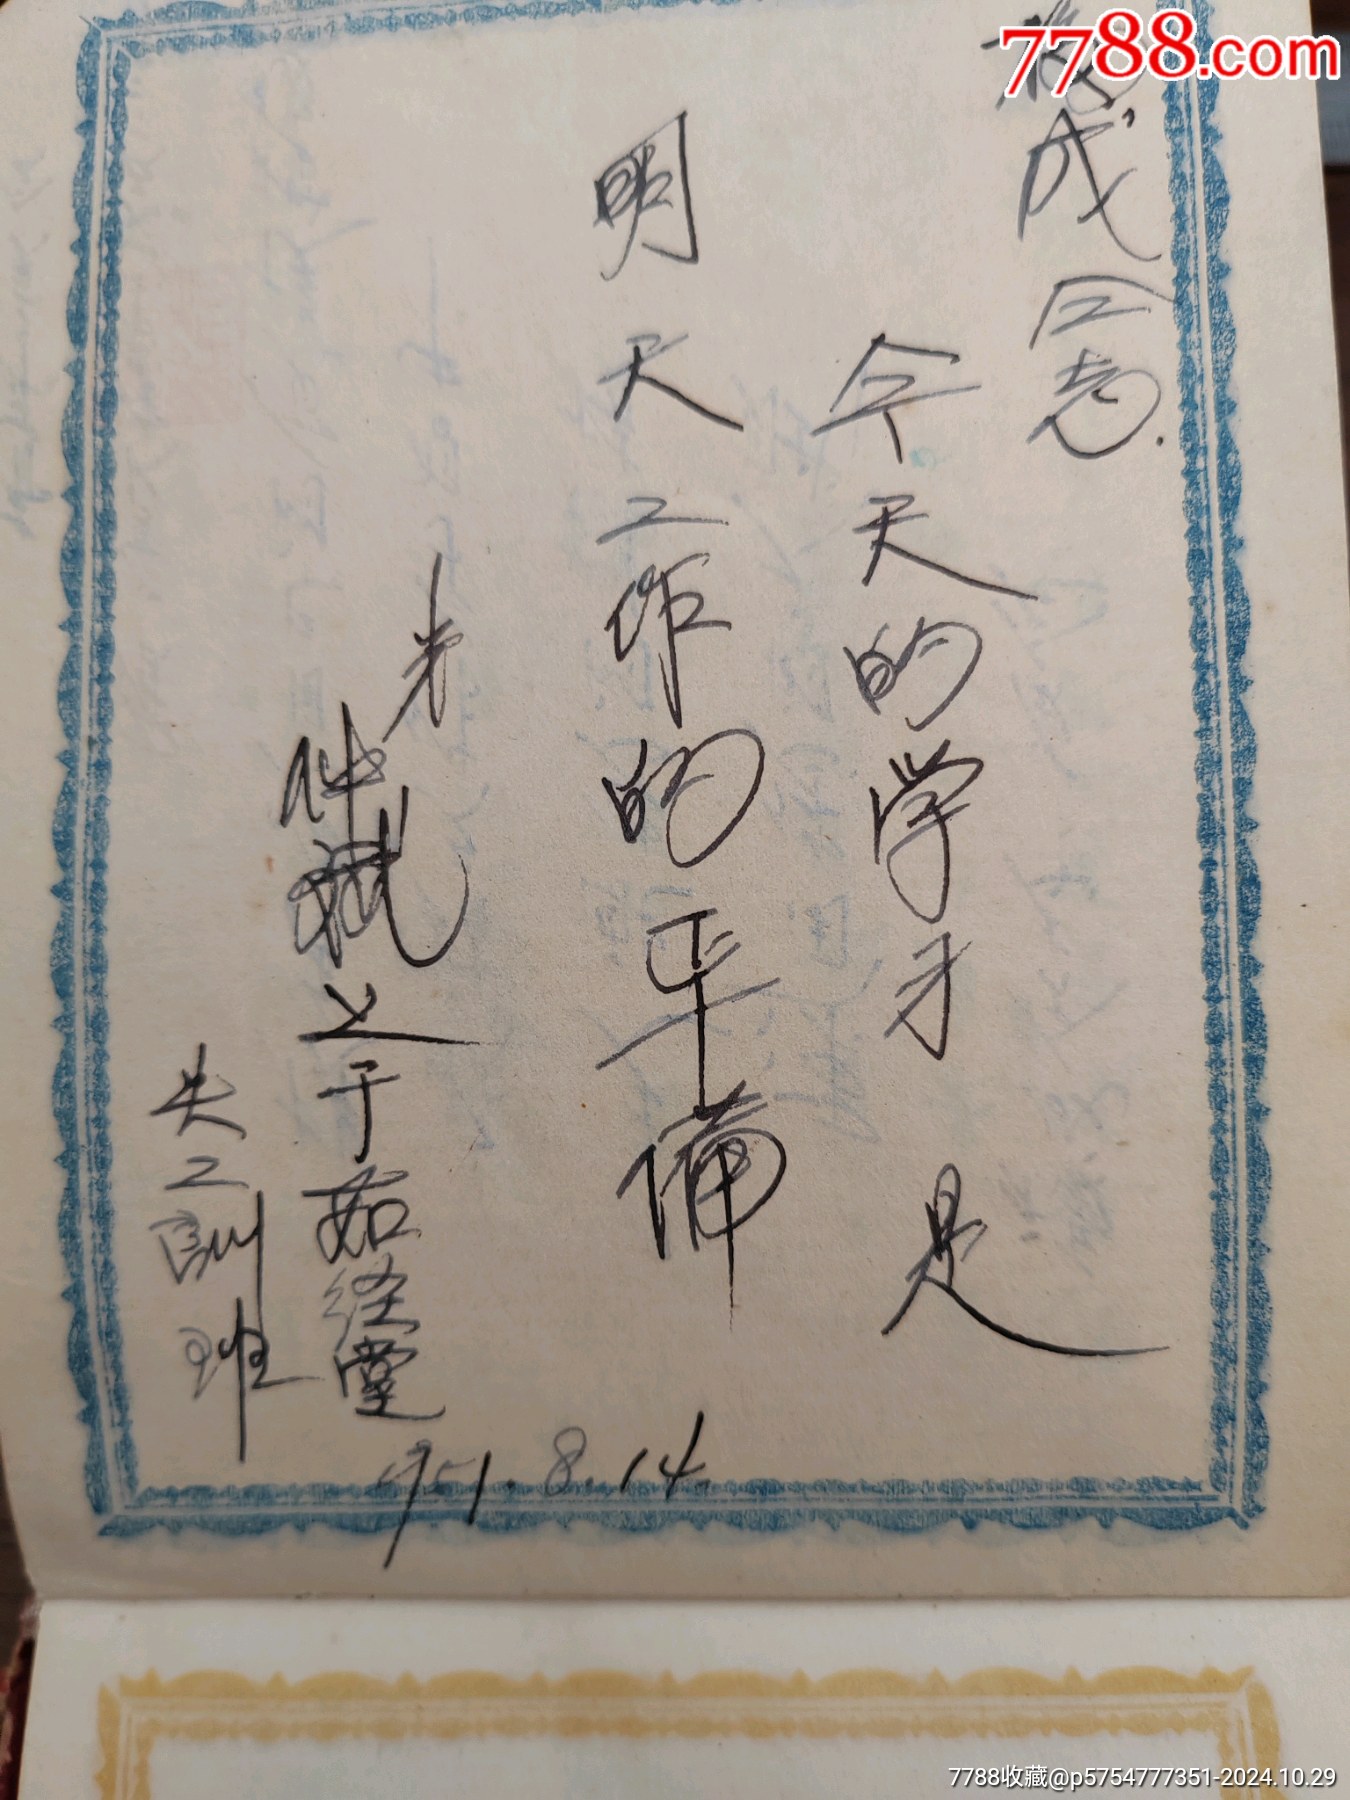 7788.com
成仝志.
今天的学习是
明天工作的準備
仲斌上于茹经堂
失工訓班
951.8.14
7788收藏@p5754777351-2024.10.29